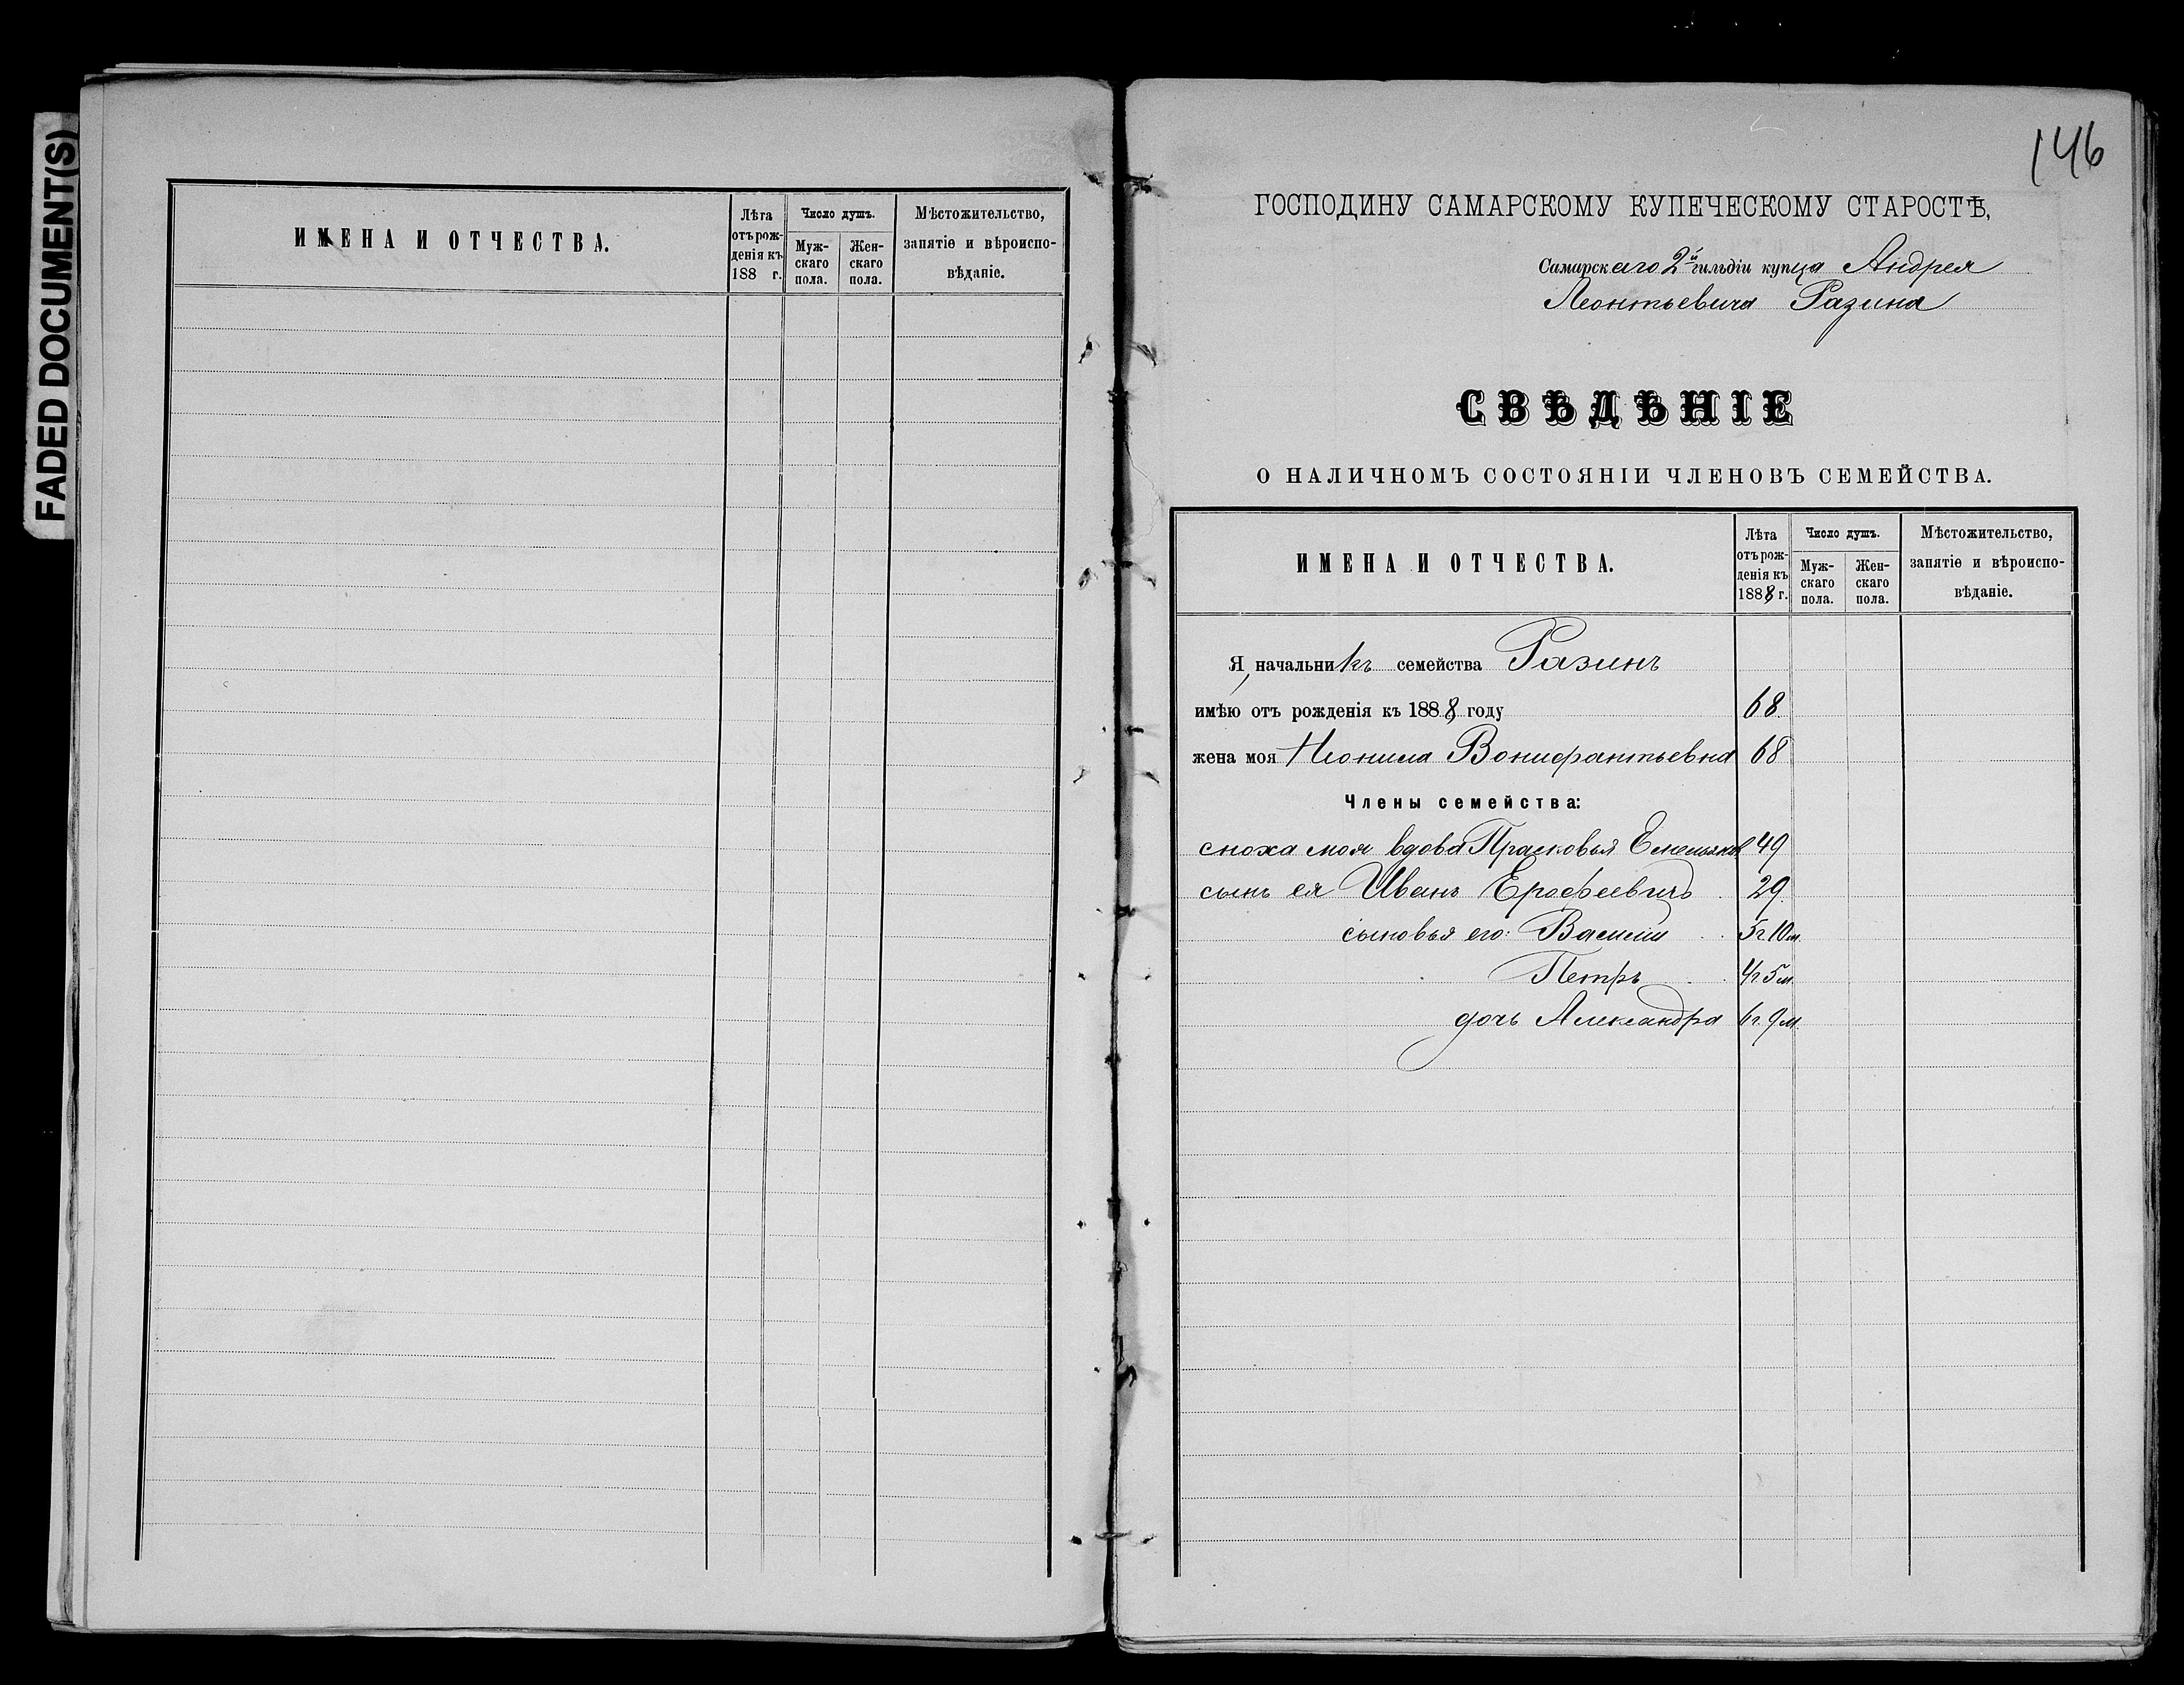 FADED DOCUMENT(S)
ИМЕНА И ОТЧЕСТВА.
Лѣта
отъ рож-
денія къ
188 г.
Число душъ.
Муж-
скаго
пола.
Жен-
скаго
пола.
Мѣстожительство,
запятіе и вѣроиспо-
вѣданіе.
146
ГОСПОДИНУ САМАРСКОМУ КУПЕЧЕСКОМУ СТАРОСТѢ,
Самарскаго 2й гильдіи купца Андрея
Леонтьевича Разина
СВѢДѢНІЕ
О НАЛИЧНОМЪ СОСТОЯНІИ ЧЛЕНОВЪ СЕМЕЙСТВА.
ИМЕНА И ОТЧЕСТВА.
Лѣта
отъ рож-
денія къ
1888 г.
Число душъ.
Муж-
скаго
пола.
Жен-
скаго
пола.
Мѣстожительство,
запятіе и вѣроиспо-
вѣданіе.
Я, начальникъ семейства Разинъ
имѣю отъ рожденія къ 1888 году 68
жена моя Неонила Вонифантьевна 68
Члены семейства:
сноха моя вдова Прасковья 49
сынъ ея Иванъ Ерофеевичъ 29
сыновья его: Василий 5г 10м.
Петръ 4г 5м.
дочь Александра 6г. 9м.